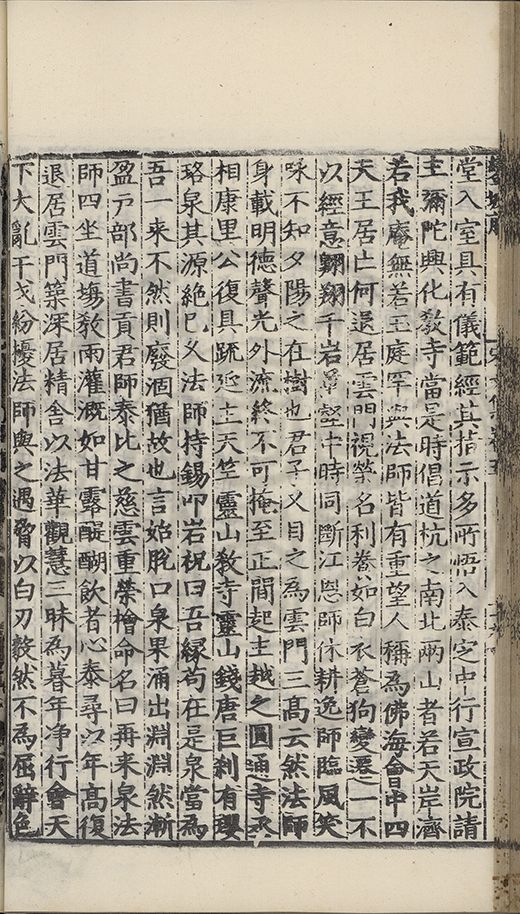 堂入室具有儀範經其指示多所悟入泰定中行宣政院請
主彌陀興化教寺當是時倡道杭之南北兩山者若天岸濟
若我庵無若玉庭罕與法師皆有重望人稱為佛海會中四
天王居亡何退居雲門視榮名利養如白衣蒼狗變遷之一不
以經意翺翔千岩萬壑中時同斷江恩師休耕逸師臨風笑
咏不知夕陽之在樹也君子又目之為雲門三高云然法師
身載明德聲光外流終不可掩至正間起主越之圓通寺丞
相康里公復具䟽延主天竺靈山教寺靈山錢唐巨刹有瓔
珞泉其源絶已久法師持錫叩岩祝曰吾緑茍在是泉當為
吾一来不然則廢涸猶故也言始脫口泉果涌出淵淵然漸
盈戸部尚書貢君師泰比之慈雲重榮檜命名曰再来泉法
師四坐道塲敎雨灌溉如甘露醍醐飲者心泰尋以年髙復
退居雲門築深居精舎以法華觀慧三昧為暮年净行會天
下大亂干戈紛擾法師與之遇脅以白刃毅然不為屈辭色